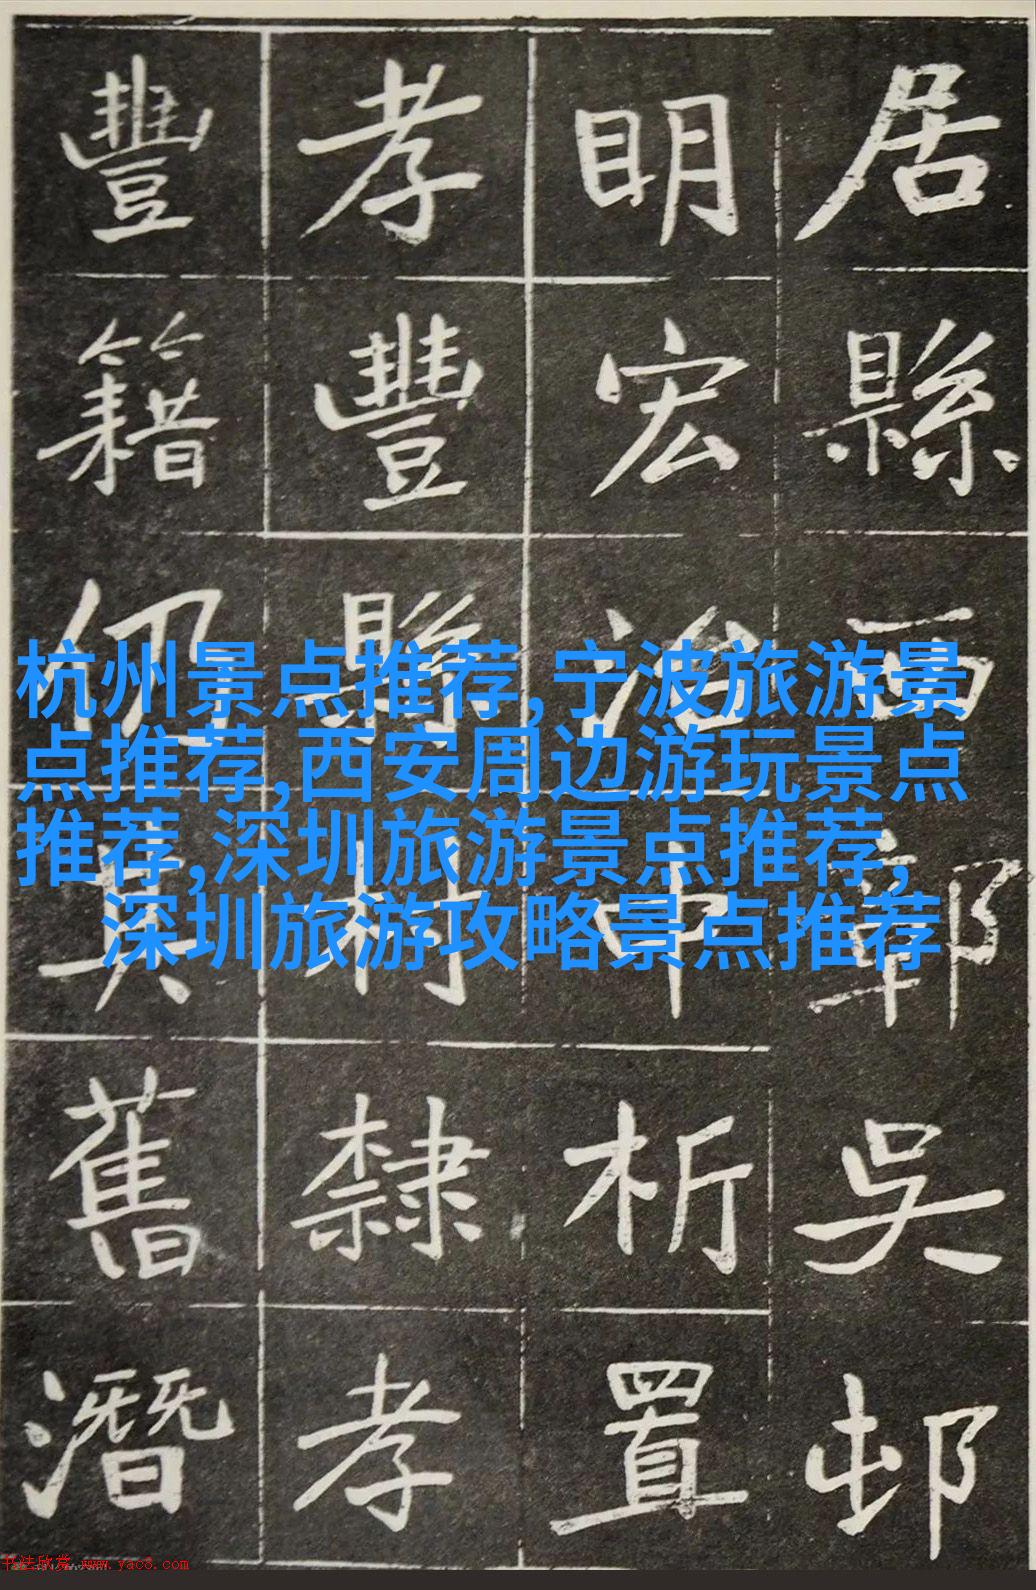 居縣西鄣吳邨
眀宏治中析置
孝豐縣村隸孝
豐籍仍其舊潛
杭州景点推荐,宁波旅游景
点推荐,西安周边游玩景点
推荐,深圳旅游景点推荐,
深圳旅游攻略景点推荐
书法欣赏 www.yac8.com